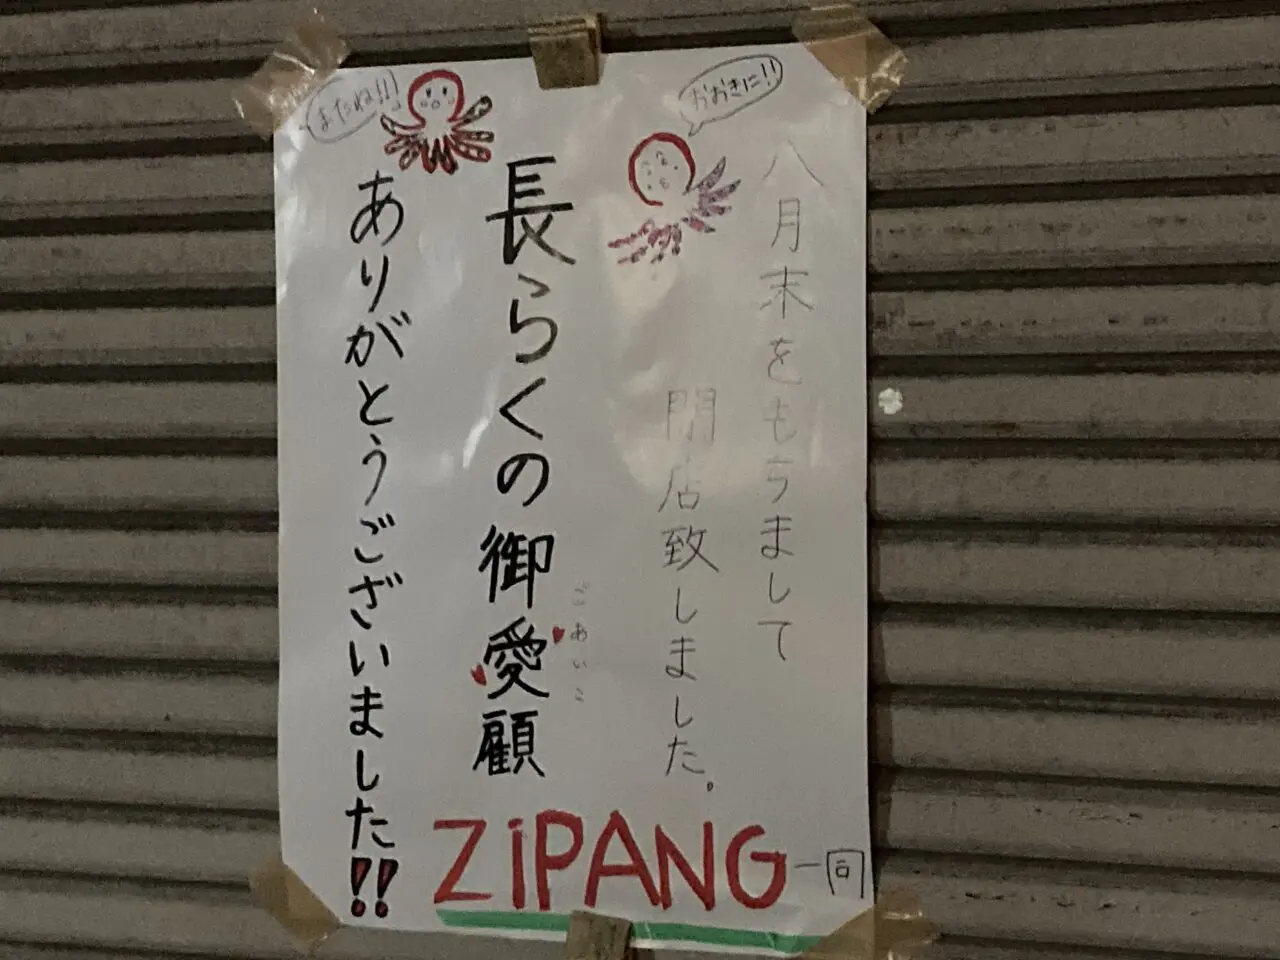 八月末をもちまして
閉店致しました。
おおきに!!
長らくの御愛顧
ごあいこ
ありがとうございました!!
またね!!
ZiPANG一同